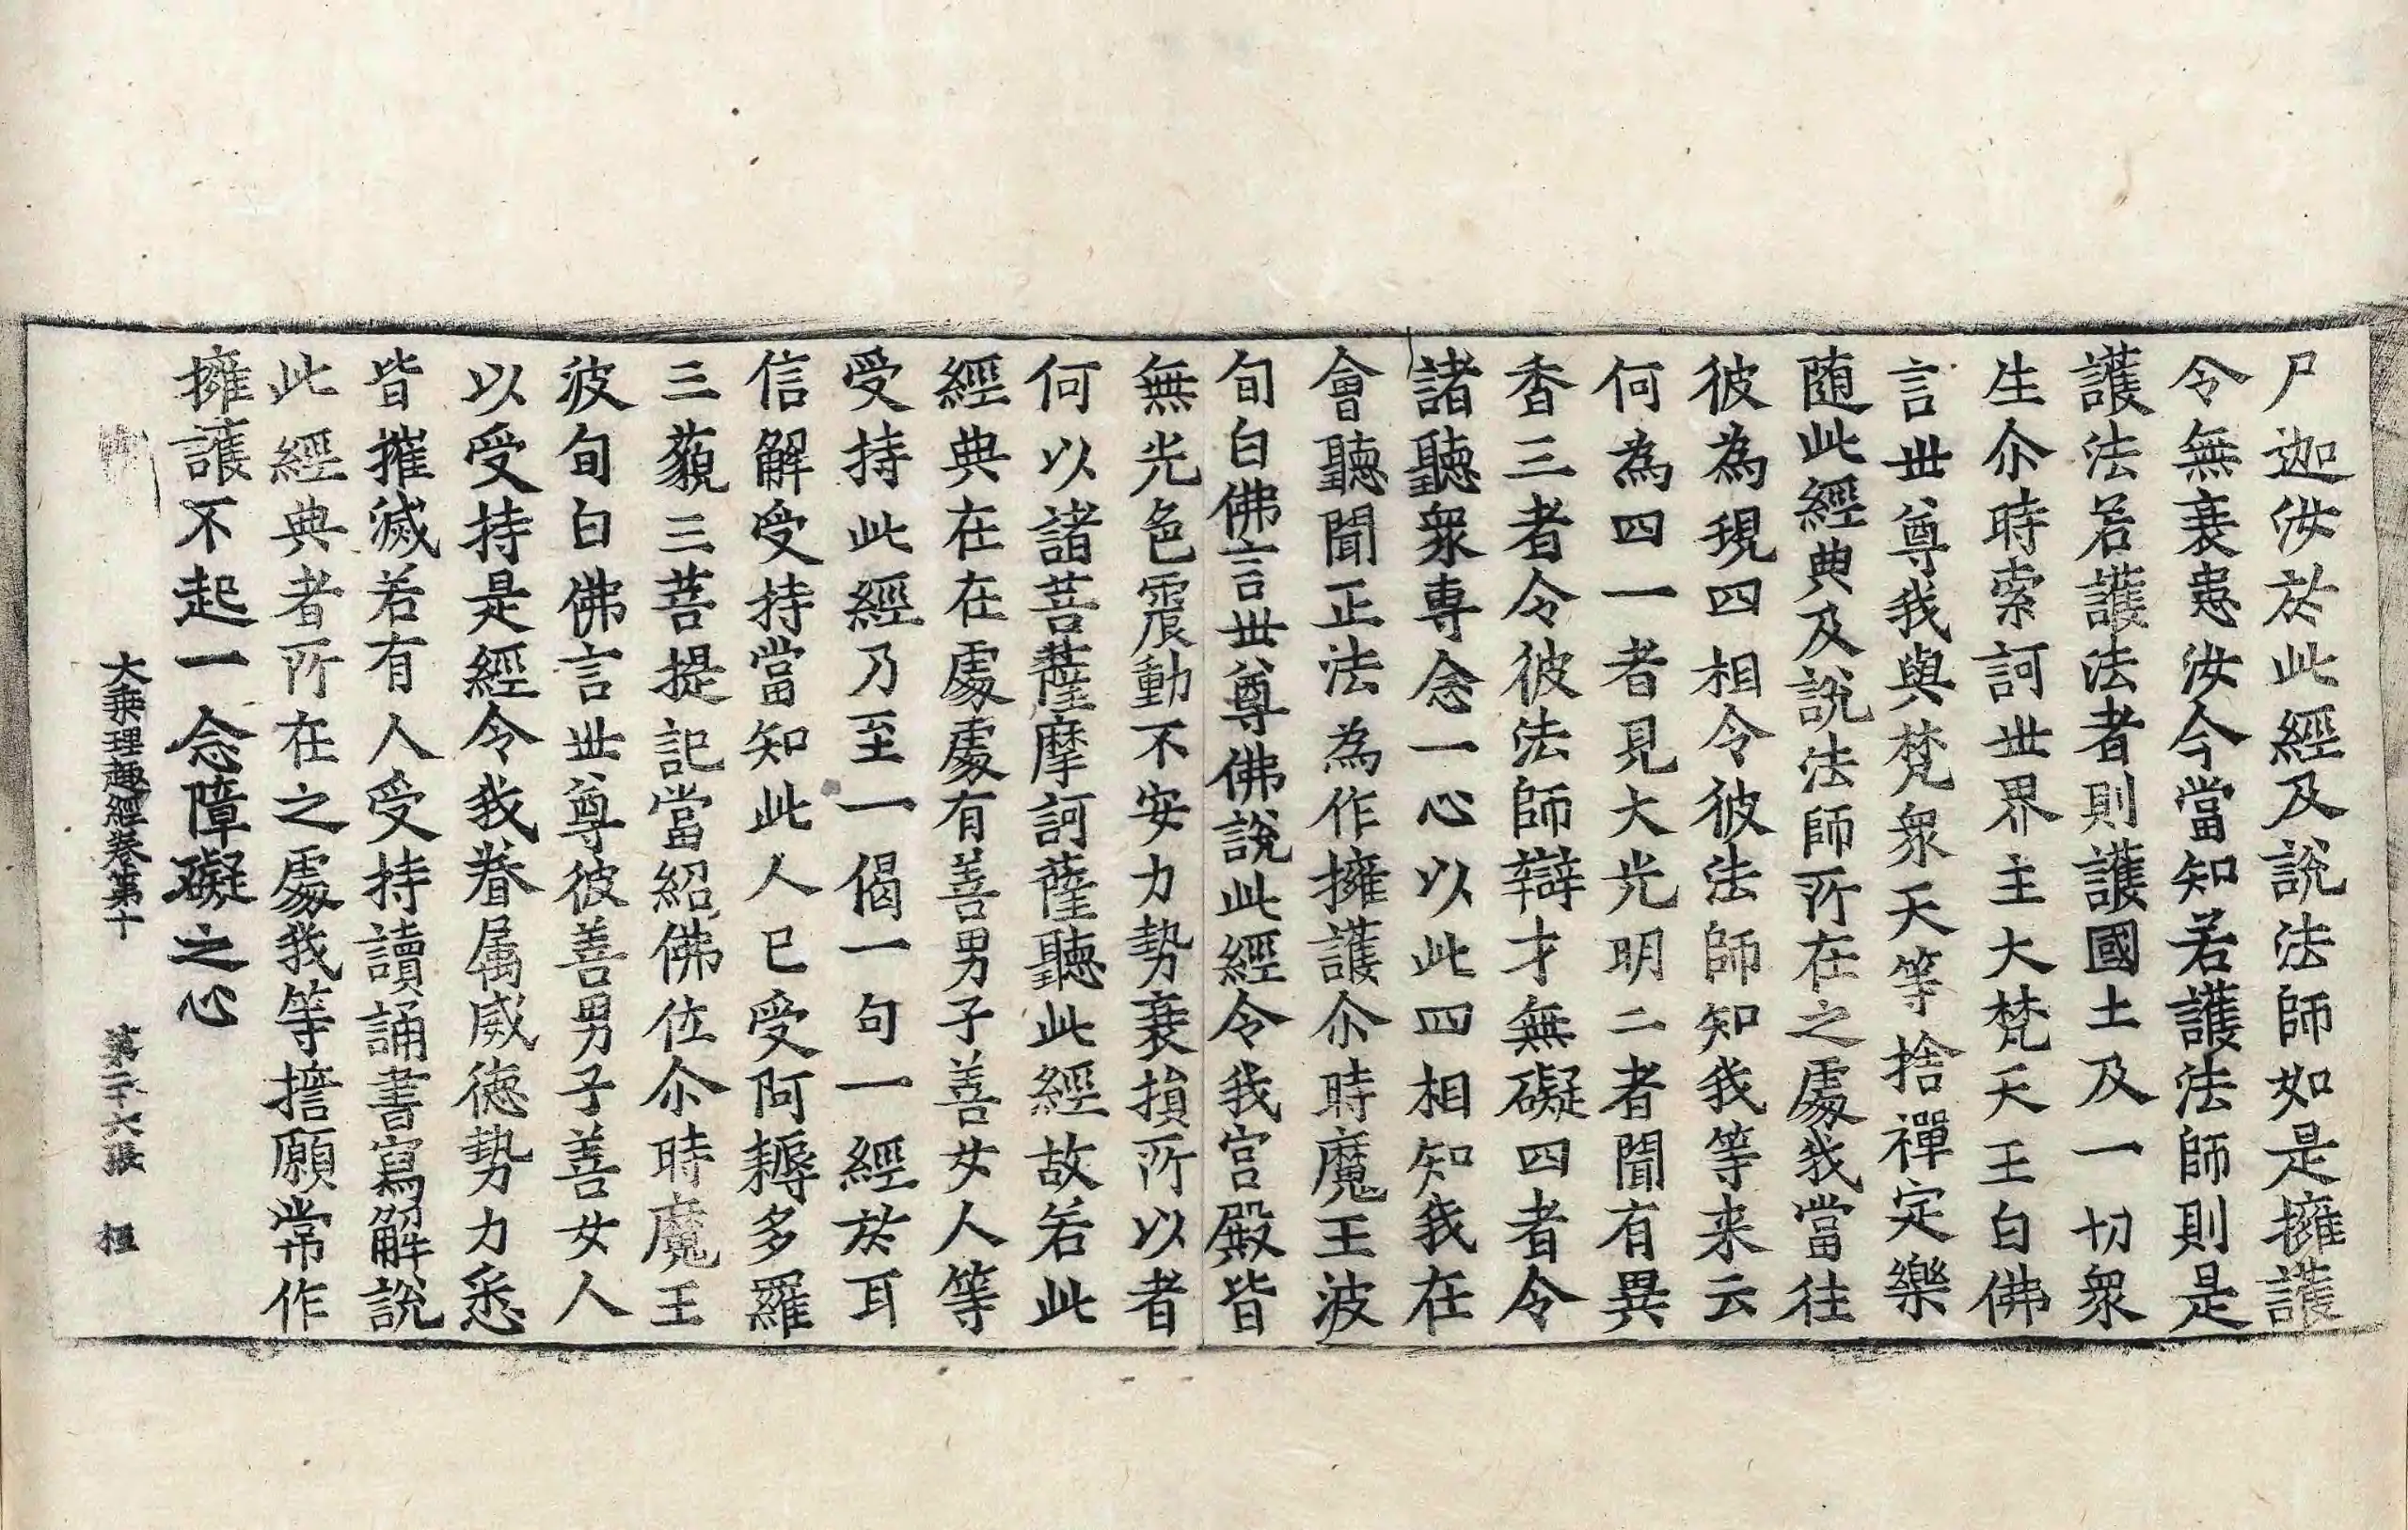 尸迦汝於此經及說法師如是擁護
令無衰患汝今當知若護法師則是
護法若護法者則護國土及一切衆
生尒時索訶世界主大梵天王白佛
言世尊我與梵衆天等捨禪定樂
随此經典及說法師所在之處我當往
彼為現四相令彼法師知我等来云
何為四一者見大光明二者聞有異
香三者令彼法師辯才無礙四者令
諸聽衆專念一心以此四相知我在
會聽聞正法為作擁護尒時魔王波
旬白佛言世尊佛說此經令我宮殿皆
無光色震動不安力勢衰損所以者
何以諸菩薩摩訶薩聽此經故若此
經典在在處處有善男子善女人等
受持此經乃至一偈一句一經於耳
信解受持當知此人已受阿耨多羅
三藐三菩提記當紹佛位尒時魔王
波旬白佛言世尊彼善男子善女人
以受持是經令我眷属威德勢力悉
皆摧滅若有人受持讀誦書寫解說
此經典者所在之處我等擔願常作
擁護不起一念障礙之心
大乘理趣經卷第十 第二十六張